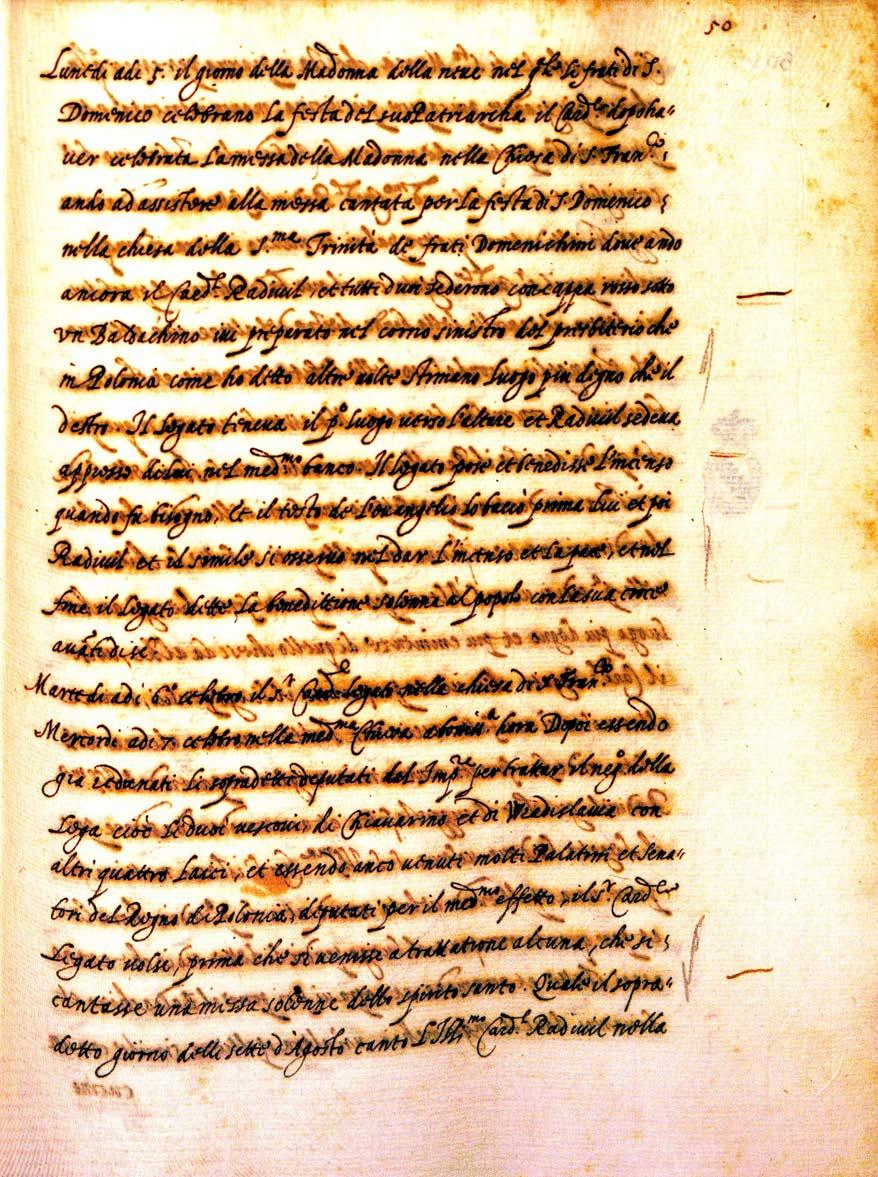 50
Lunedi adi 5. il giorno della Madonna della neue nel q̃le li frati di S.
Domenico celebrano la festa del suo Patriarcha il Card.le dopo ha-
uer celebrata la messa della Madonna nella Chiesa di S. Fran.co
andò ad assistere alla messa cantata per la festa di S. Domenico
nella chiesa della S.ma Trinità de frati Domenichini doue andò
ancora il Card.l Radiuil, et tutti duoi sederono con cappa rosso sotto
vn Baldachino iui preparato nel corno sinistro del presbiterio che
in Polonia come ho detto altre uolte stimano luogo piu degno che il
destro. Il Legato teneua il p.o luogo uerso l'altare et Radiuil sedeua
appresso di lui nel med.mo banco. Il legato pose et benedisse l'incenso
quando fu bisogno, et il testo de l'euangelio lo bacciò prima lui et poi
Radiuil et il simile si osseruò nel dar l'incenso et la pace, et nel
fine il legato dette la benedittione solenne al popolo con la sua croce
auãti di se.
Martedi adi 6. celebrò il S.r Card.le legato nella chiesa di S. Fran.co
Mercordi adi 7. celebrò nella med.ma Chiesa a boniss.a hora Dipoi essendo
gia radunati li sopradetti deputati dal Imp.re per trattar il neg.o della
Lega cioè li duoi uescoui, di Chiauarino et di Wradislauia con
altri quattro laici, et essendo anco uenuti molti Palatini et Sena-
tori del Regno di Polonia, deputati per il med.mo effetto, il S.r Card.le
Legato uolse, prima che si uenisse a trattatione alcuna, che si
cantasse una messa solenne dello spirito santo. Quale il sopra-
detto giorno delli sette d'Agosto cantò l'Ill.mo Card.l Radiuil nella